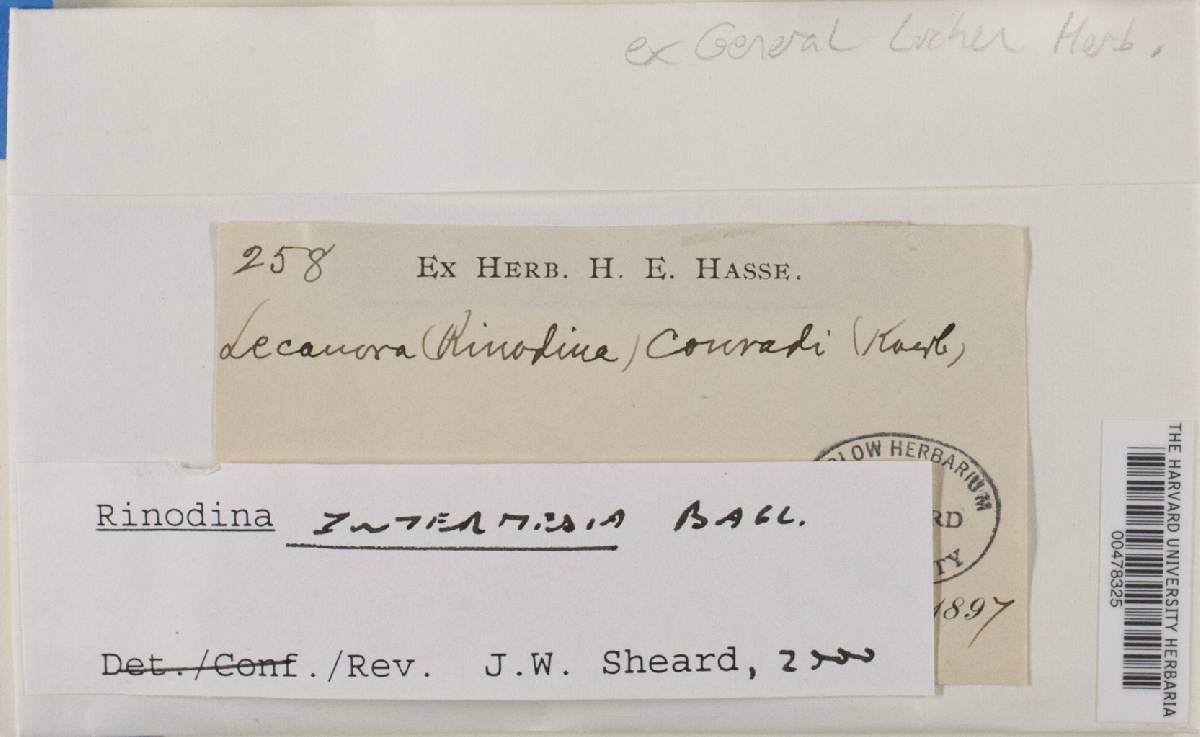 ex General Lichen Herb.
258 EX HERB. H. E. HASSE.
Lecanora (Rinodina) Conradi (Koerb)
LOW HERBARIUM
RD
TY
1897
Rinodina INTERMEDIA BAGL.
Det./Conf./Rev. J.W. Sheard, 2000
THE HARVARD UNIVERSITY HERBARIA
00478325